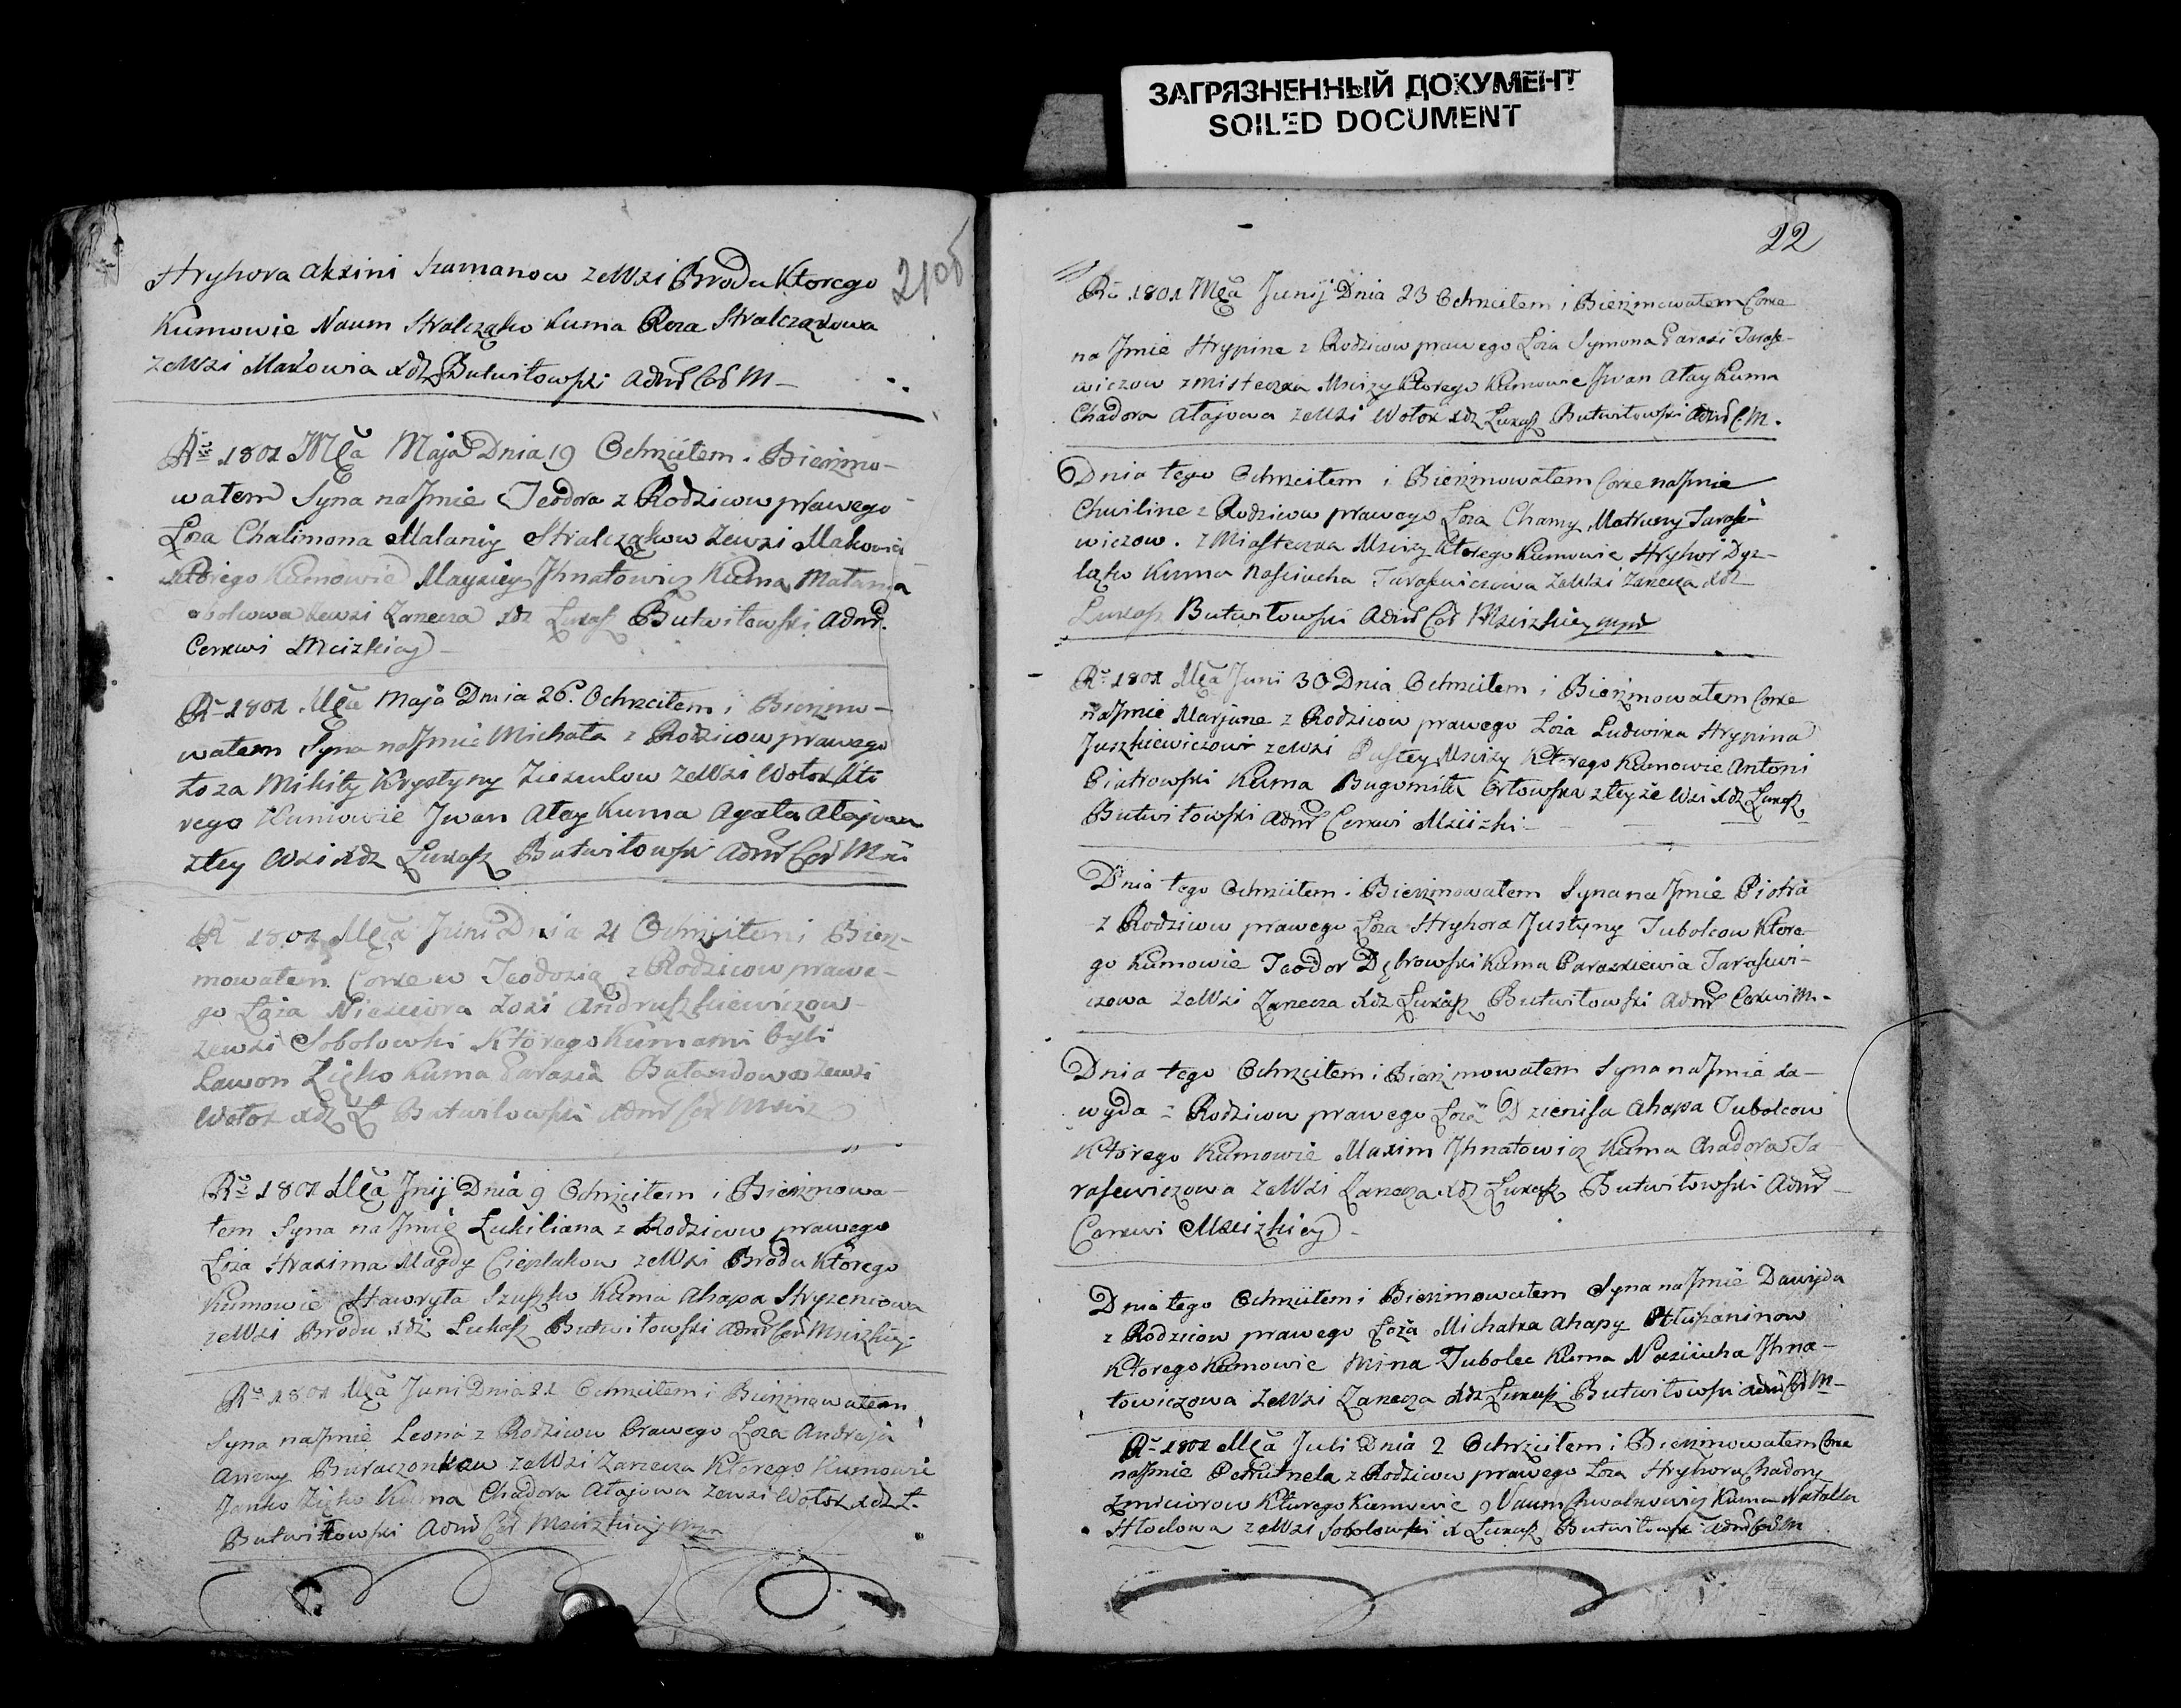 ЗАГРЯЗНЕННЫЙ ДОКУМЕНТ
SOILED DOCUMENT
21об
Hryhora Aksini Szumanow zeWsi Brodu Ktorego
Kumowie Naum Stralczako Kuma Roza Stralczakowa
zeWsi Makowia xdz Butwiłowski Admr Cer M
Ru 1801 Mca Maja Dnia 19 Ochrzciłem i Bierzmo-
wałem Syna na Jmie Teodora z Rodzicow prawego
Łoża Chalimona Małaniy Stralczakow zewsi Makowia
Ktorego Kumowie Maysiey Jhnatowicz Kuma Małania
zewsi Zarzecza xdz Łukasz Butwiłowski Admr.
Cerkwi Mścizkiey
Ru 1801 Mca Maja Dnia 26. Ochrzciłem i Bierzmo-
wałem Syna na Jmie Michała z Rodzicow prawego
Łoza Mikity Krystyny zeWsi Wołok Kto
rego Kumowie Jwan Ałay Kuma Agata Ałajowa
z tey Wsi xdz Łukasz Butwiłowski Admr Cer Mści
Ru 1801 Mca Juni Dnia 4 Ochrzciłem i Bierz-
mowałem Corke Teodozią z Rodzicow prawe-
go Łoża Zosi Andruszkiewiczow
zewsi Sobolowki Ktorego Kumami byli
Ławon Zięko Kuma Parasia Bałandowa zewsi
Wołok xdz Ł Butwiłowski Admr Cer Mściz
Ru 1801 Mca Jnij Dnia 9 Ochrzciłem i Bierzmowa-
łem Syna na Jmie Łukiliana z Rodzicow prawego
Łoża Hrasima Magdy Cieplakow zeWsi Brodu Ktorego
Kumowie Hawryła Szuszko Kuma Ahapa Hryzeniowa
zeWsi Brodu xdz Łukasz Butwiłowski Admr Cer Mścizkiey
Ru 1801 Mca Juni Dnia 21 Ochrzciłem i Bierzmowałem
Syna na Jmie Leona z Rodzicow Prawego Łoza Andreja
Anny Buraczonkow zeWsi Zarzecza Ktorego Kumowie
Janko Zięko Kuma Chadora Ałajowa zewsi Wołok xdz Ł.
Butwiłowski Admr Cer Mścizkiey
22
Ru 1801 Mca Junij Dnia 23 Ochrzciłem i Bierzmowałem Corke
na Jmie Hrypine z Rodzicow prawego Łoża Symona Parasi Tarase-
wiczow z Miasteczka Mścizy Ktorego Kumowie Jwan Ałay Kuma
Chadora Ałajowa zeWsi Wołok xdz Łukasz Butwiłowski Admr C. M.
Dnia tego Ochrzciłem i Bierzmowałem Corke na Jmie
Chwiline z Rodzicow prawego Łoża Chamy Matruny Tarase-
wiczow. z Miasteczka Mścizy Ktorego Kumowie Hryhor Dyz-
lazko Kuma Nasciucha Tarasewiczowa zeWsi Zarzecza xdz
Łukasz Butwiłowski Admr Cer Mścizkiey mpr
Ru 1801 Mca Juni 30 Dnia Ochrzciłem i Bierzmowałem Corke
na Jmie Marjane z Rodzicow prawego Łoża Ludwika Hrypina
Juszkiewiczow zeWsi Pustey Mścizy Ktorego Kumowie Antoni
Piotrowski Kuma Bugomiła Orłowska z tey że Wsi xdz Łukasz
Butwiłowski Admr Cerkwi Mścizki
Dnia tego Ochrzciłem i Bierzmowałem Syna na Jmie Piotra
z Rodzicow prawego Łoza Hryhora Justyny Tubolcow Ktore-
go Kumowie Teodor Dąbrowski Kuma Paraskiewia Tarasewi-
czowa zeWsi Zarzecza xdz Łukasz Butwiłowski Admr Cerkwi M.
Dnia tego Ochrzciłem i Bierzmowałem Syna na Jmie Da-
wyda z Rodzicow prawego Łoża Dzienisa Ahapa Tubolcow
Ktorego Kumowie Maxim Jhnatowicz Kuma Chadora Ta
rasewiczowa zeWsi Zarzecza xdz Łukasz Butwiłowski Admr
Cerkwi Mścizkiey
Dnia tego Ochrzciłem i Bierzmowałem Syna na Jmie Dawyda
z Rodzicow prawego Łoża Michałka Ahapy
Ktorego Kumowie Mina Tubolec Kuma Nasciucha Jhna-
towiczowa zeWsi Zarzecza xdz Łukasz Butwiłowski Admr Cer M
Ru 1801 Mca Juli Dnia 2 Ochrzciłem i Bierzmowałem Corke
na Jmie Petrunela z Rodzicow prawego Łoza Hryhora Chadory
Zmicirow Ktorego Kumowie Naum Kuma Natalla
zeWsi Sobolowki x Łukasz Butwiłowski Admr Cer M